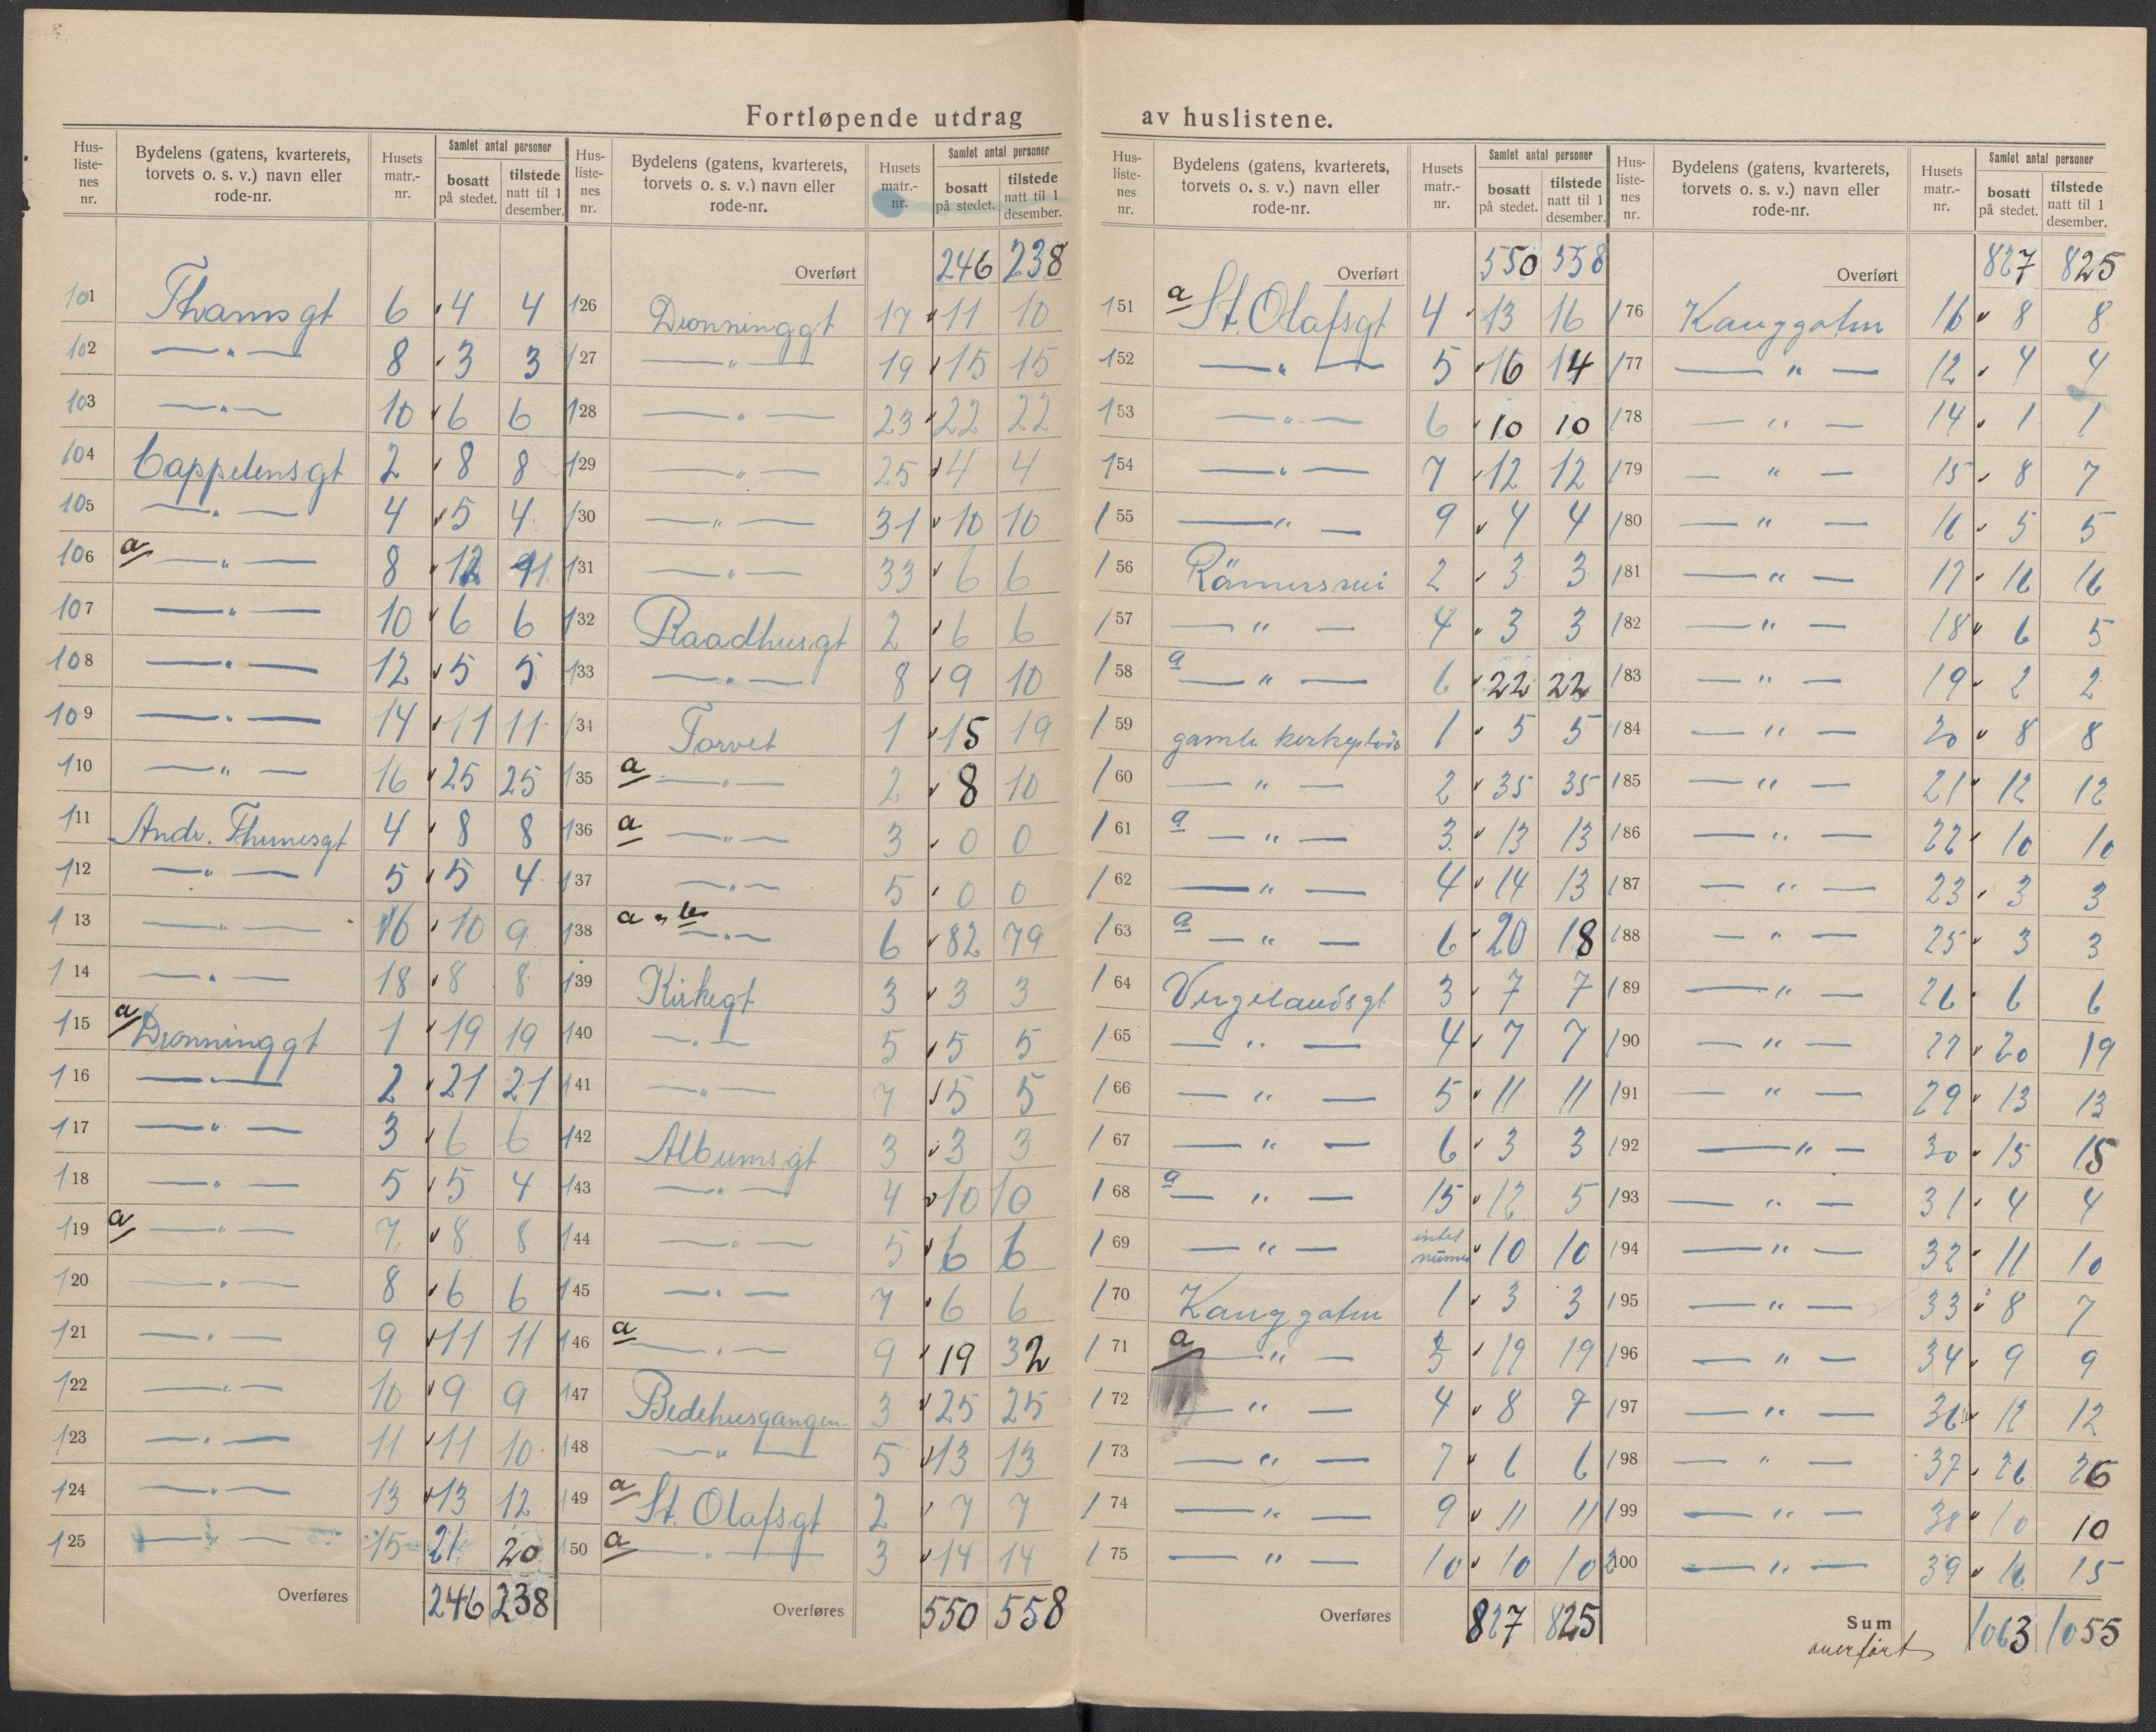 Fortløpende utdrag av huslistene.
Hus-liste-nes nr. Bydelens (gatens, kvarterets, torvets o. s. v.) navn eller rode-nr. Husets matr.-nr. Samlet antal personer bosatt på stedet. tilstede natt til 1 desember.
101 Thamsgt 6 4 4
102 —„— 8 3 3
103 —„— 10 6 6
104 Cappelensgt 2 8 8
105 —„— 4 5 4
106 a —„— 8 12 11
107 —„— 10 6 6
108 —„— 12 5 5
109 —„— 14 11 11
110 —„— 16 25 25
111 Andr. Thunesgt 4 8 8
112 —„— 5 5 4
113 —„— 16 10 9
114 —„— 18 8 8
115 a Dronninggt 1 19 19
116 —„— 2 21 21
117 —„— 3 6 6
118 —„— 5 5 4
119 a —„— 7 8 8
120 —„— 8 6 6
121 —„— 9 11 11
122 —„— 10 9 9
123 —„— 11 11 10
124 —„— 13 13 12
125 —„— 15 21 20
Overføres 246 238
Hus-liste-nes nr. Bydelens (gatens, kvarterets, torvets o. s. v.) navn eller rode-nr. Husets matr.-nr. Samlet antal personer bosatt på stedet. tilstede natt til 1 desember.
Overført 246 238
126 Dronninggt 17 11 10
127 —„— 19 15 15
128 —„— 23 22 22
129 —„— 25 4 4
130 —„— 31 10 10
131 —„— 33 6 6
132 Raadhusgt 2 6 6
133 —„— 8 9 10
134 Torvet 1 15 19
135 a —„— 2 8 10
136 a —„— 3 0 0
137 —„— 5 0 0
138 a —„— 6 82 79
139 Kirkegt 3 3 3
140 —„— 5 5 5
141 —„— 7 5 5
142 Albumsgt 3 3 3
143 —„— 4 10 10
144 —„— 5 6 6
145 —„— 7 6 6
146 a —„— 9 19 32
147 Bedehusgangen 3 25 25
148 —„— 5 13 13
149 a St. Olafsgt 2 7 7
150 a —„— 3 14 14
Overføres 550 558
Hus-liste-nes nr. Bydelens (gatens, kvarterets, torvets o. s. v.) navn eller rode-nr. Husets matr.-nr. Samlet antal personer bosatt på stedet. tilstede natt til 1 desember.
Overført 550 558
151 a St. Olafsgt 4 13 16
152 —„— 5 16 14
153 —„— 6 10 10
154 —„— 7 12 12
155 —„— 9 4 4
156 2 3 3
157 —„— 4 3 3
158 a —„— 6 22 22
159 gamle 1 5 5
160 —„— 2 35 35
161 a —„— 3 13 13
162 —„— 4 14 13
163 a —„— 6 20 18
164 Vergelandsgt 3 7 7
165 —„— 4 7 7
166 —„— 5 11 11
167 —„— 6 3 3
168 a —„— 15 12 5
169 —„— 10 10
170 Kauggaten 1 3 3
171 a —„— 3 19 19
172 —„— 4 8 7
173 —„— 7 6 6
174 —„— 9 11 11
175 —„— 10 10 10
Overføres 827 825
Hus-liste-nes nr. Bydelens (gatens, kvarterets, torvets o. s. v.) navn eller rode-nr. Husets matr.-nr. Samlet antal personer bosatt på stedet. tilstede natt til 1 desember.
Overført 827 825
176 Kauggaten 8 8
177 —„— 12 4 4
178 —„— 14 1 1
179 —„— 15 8 7
180 —„— 16 5 5
181 —„— 17 16 16
182 —„— 18 6 5
183 —„— 19 2 2
184 —„— 20 8 8
185 —„— 21 12 12
186 —„— 22 10 10
187 —„— 23 3 3
188 —„— 25 3 3
189 —„— 26 6 6
190 —„— 27 20 19
191 —„— 29 13 13
192 —„— 30 15 15
193 —„— 31 4 4
194 —„— 32 11 10
195 —„— 33 8 7
196 —„— 34 9 9
197 —„— 36 12 12
198 —„— 37 26 26
199 —„— 38 10 10
200 —„— 39 16 15
Sum 1063 1055
overført